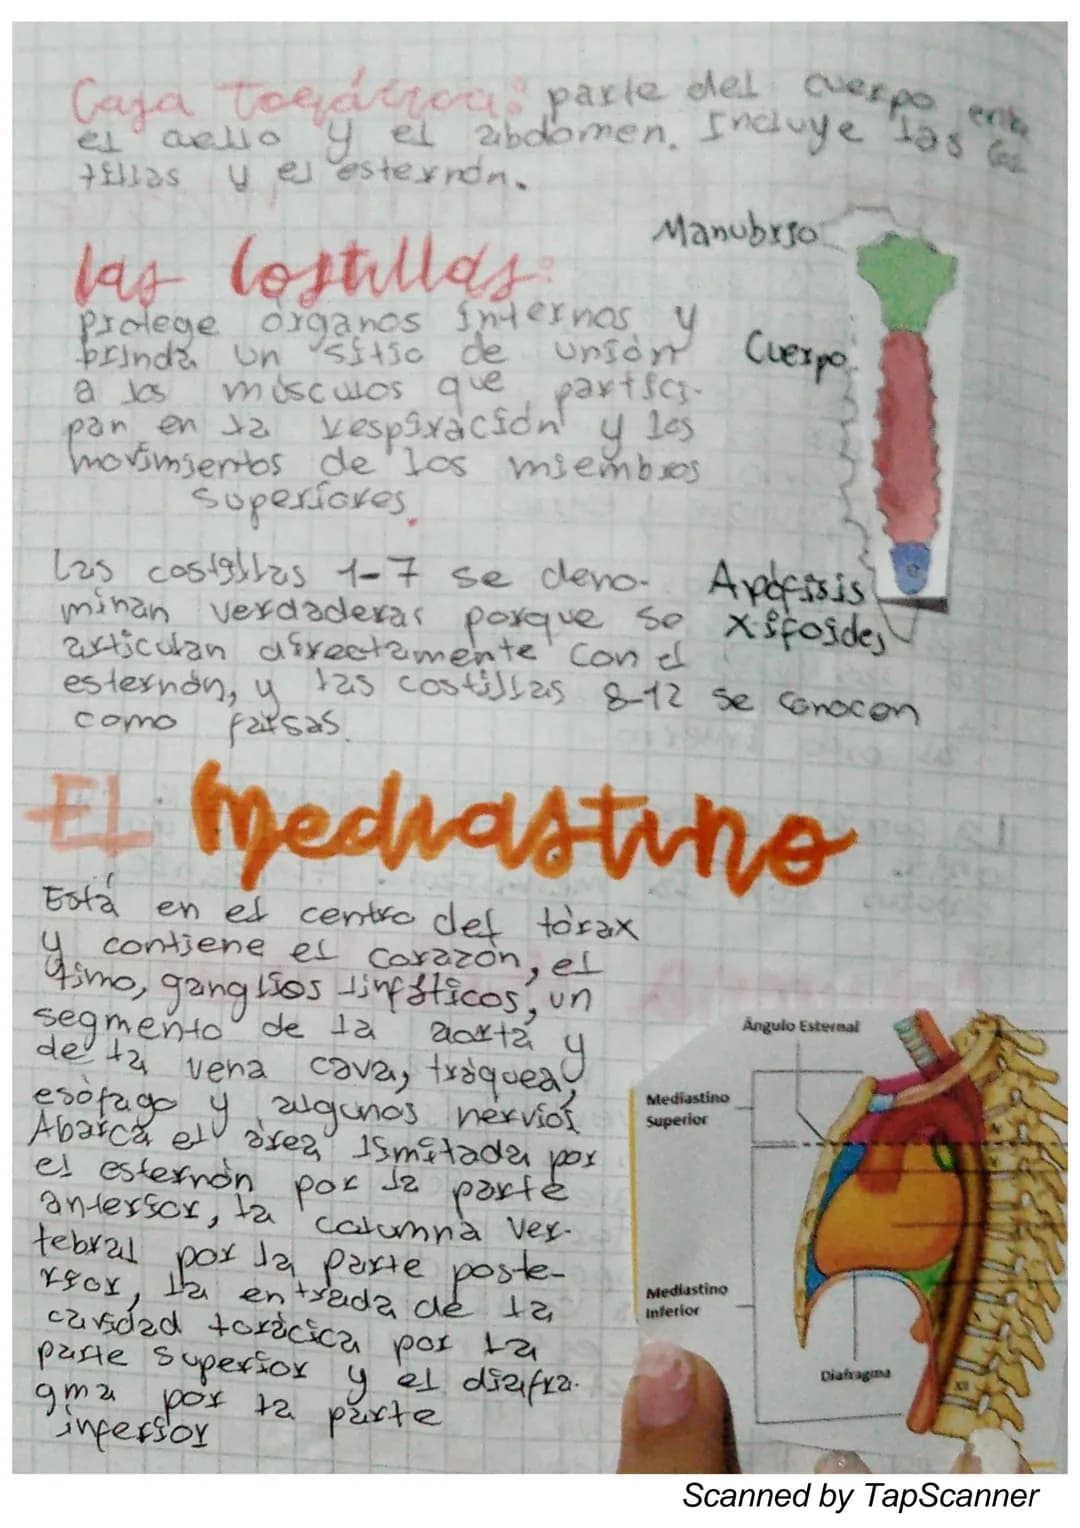 Caja Torácica: parte del cuerpo entre
el cuello y el abdomen. Incluye las cos
tillas y el esternón.
Manubrio
las Costillas:
Protege órganos internos y
brinda un sitio de unión
a los músculos que partici-
pan en la respiración y los
movimientos de los miembros
superiores.
Cuerpo
Las costillas 1-7 se deno-
minan verdaderas porque se
articulan directamente con el
esternón, y las costillas 8-12 se conocen
como falsas.
Apófisis
Xifoides
El Mediastino
Está en el centro del tórax
y contiene el corazón, el
timo, ganglios linfáticos, un
segmento de la aorta y
de la vena cava, tráquea,
esófago y algunos nervios
Abarca el área limitada por
el esternón por la parte
anterior, la columna ver-
tebral por la parte poste-
rior, la entrada de la
cavidad torácica por la
parte superior y el diafra-
gma por la parte
inferior
Ángulo Esternal
Mediastino
Superior
Mediastino
Inferior
Diafragma
Scanned by TapScanner